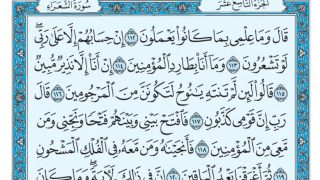 الجُزءُ التَّاسِعَ عَشَرَ سُورَةُ الشُّعَرَاءِ
قَالَ وَمَا عِلْمِى بِمَا كَانُوا۟ يَعْمَلُونَ ١١٢ إِنْ حِسَابُهُمْ إِلَّا عَلَىٰ رَبِّى ۖ
لَوْ تَشْعُرُونَ ١١٣ وَمَآ أَنَا۠ بِطَارِدِ ٱلْمُؤْمِنِينَ ١١٤ إِنْ أَنَا۠ إِلَّا نَذِيرٌ مُّبِينٌ
١١٥ قَالُوا۟ لَئِن لَّمْ تَنتَهِ يَـٰنُوحُ لَتَكُونَنَّ مِنَ ٱلْمَرْجُومِينَ ١١٦ قَالَ
رَبِّ إِنَّ قَوْمِى كَذَّبُونِ ١١٧ فَٱفْتَحْ بَيْنِى وَبَيْنَهُمْ فَتْحًا وَنَجِّنِى وَمَن
مَّعِىَ مِنَ ٱلْمُؤْمِنِينَ ١١٨ فَأَنجَيْنَـٰهُ وَمَن مَّعَهُۥ فِى ٱلْفُلْكِ ٱلْمَشْحُونِ
١١٩ ثُمَّ أَغْرَقْنَا بَعْدُ ٱلْبَاقِينَ ١٢٠ إِنَّ فِى ذَٰلِكَ لَـَٔايَةً ۖ وَمَا كَانَ